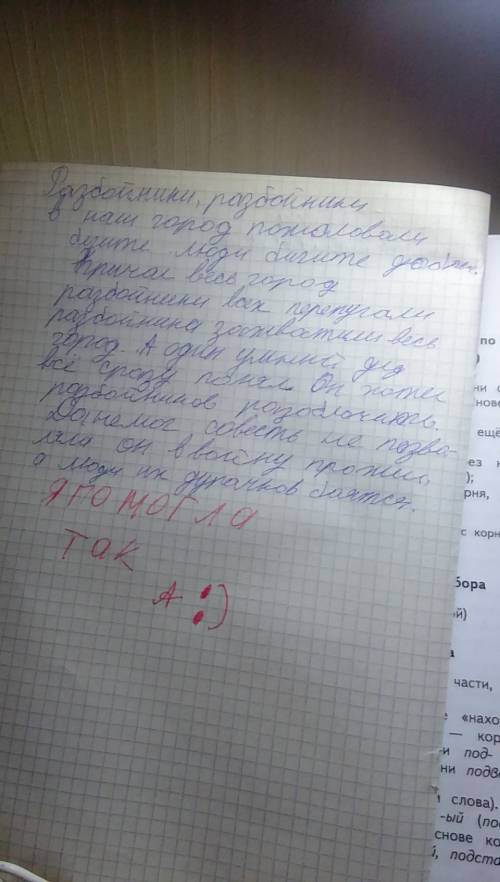 Разбойники, разбойники
в наш город пожаловали
бгите люди бигите добрие.
Кричал весь город
разбойники вах перепугали
разбойника захватили весь
город. А один умний дед
всё сразу понял. Он хотел
разбойников разоблачить.
Да немог совесть не позво-
ляла он в войну прожил,
а люди их дурачков боятся.
Я ПОМОГЛА
ТАК
А :)
по
)
ни с
ещё
рня,
с корн
бора
ой)
а
части,
е «нахо
— кор
и под-
ни подв
и слова).
-ый (по
снове ко
й, подста